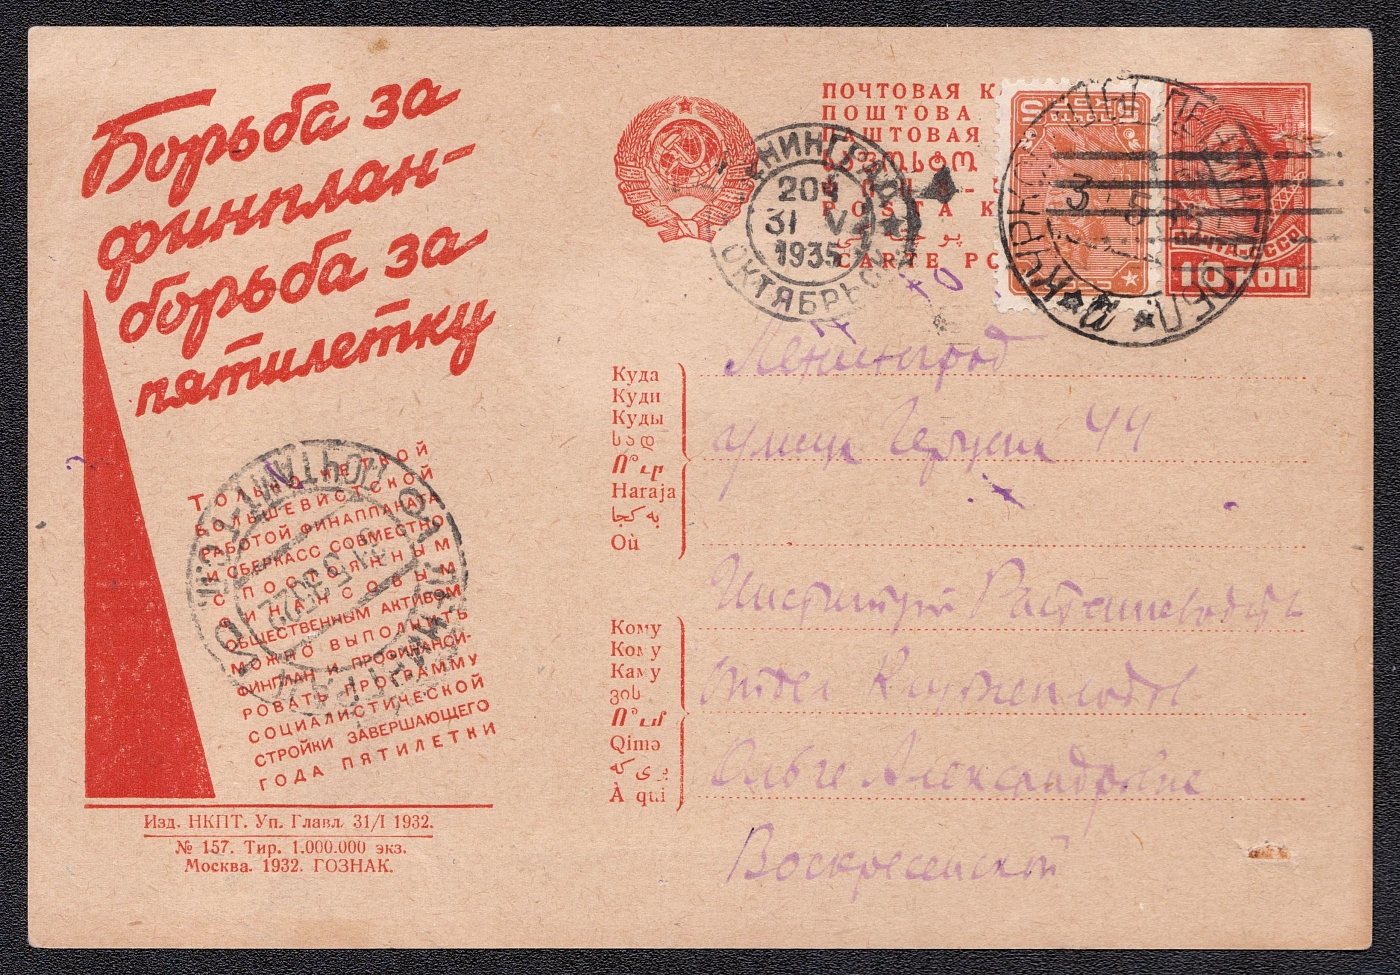 Борьба за
финплан-
борьба за
пятилетку
Только четкой
большевистской
работой финаппарата
и сберкасс совместно
с постоянным
финансовым
общественным активом
можно выполнить
финплан и профинанси-
ровать программу
социалистической
стройки завершающего
года пятилетки
Изд. НКПТ. Уп. Главл. 31/I 1932.
№ 157. Тир. 1.000.000 экз.
Москва. 1932. ГОЗНАК.
ПОЧТОВАЯ К
ПОШТОВА
ПАШТОВАЯ
POSTA K
CARTE PO
ПОЧТА СССР
10 КОП
ЛЕНИНГРАД
204
31 V
1935
ОКТЯБРЬСК
Куда
Куди
Куды
სად
Ո՞ւր
Haraja
به کجا
Où
Ленинград
улица Герцена 44
Кому
Кому
Каму
ვის
Ո՞ւմ
Qimə
À qui
Институт Растениеводств
отдел Корнеплодов
Ольге Александровне
Воскресенской